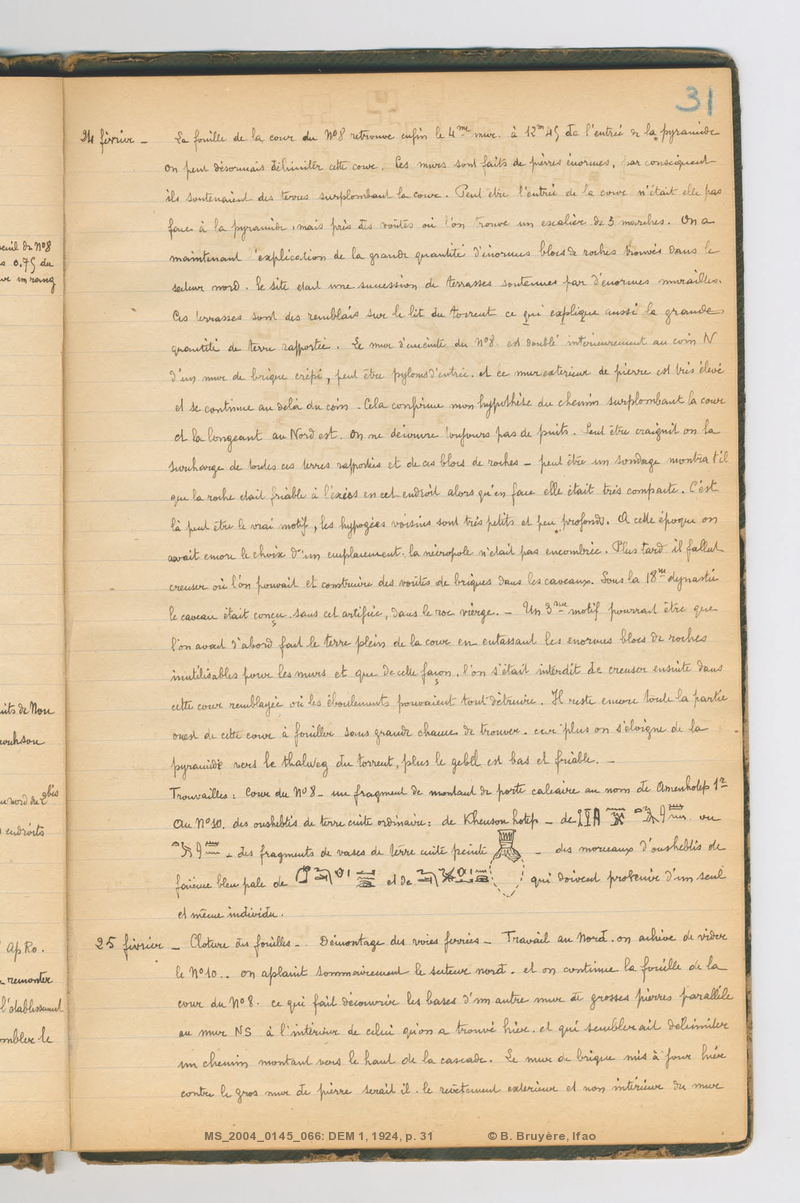 31
24 février – La fouille de la cour du N°8 retrouve enfin le 4me mur. à 12m45 de l'entrée de la pyramide
On peut désormais délimiter cette cour. Les murs sont faits de pierres énormes, par conséquent
ils soutenaient des terres surplombant la cour. Peut être l'entrée de la cour n'était elle pas
face à la pyramide mais près des voûtes où l'on trouve un escalier de 3 marches. On a
maintenant l'explication de la grande quantité d'énormes blocs de roches trouvés dans le
secteur nord. Le site était une succession de terrasses soutenues par d'énormes murailles.
Ces terrasses sont des remblais sur le lit du torrent ce qui explique aussi la grande
quantité de terre rapportée. Le mur d'enceinte du N°8 est doublé intérieurement au coin N
d'un mur de brique crépi, peut être pylone d'entrée. et ce mur extérieur de pierre est très élevé
et se continue au delà du coin. Cela confirme mon hypothèse du chemin surplombant la cour
et la longeant au Nord est. On ne découvre toujours pas de puits. Peut être craignit on la
surcharge de toutes ces terres rapportées et de ces blocs de roches – peut être un sondage montra t'il
que la roche était friable à l'excès en cet endroit alors qu'en face elle était très compacte. C'est
là peut être le vrai motif, les hypogées voisins sont très petits et peu profonds. A cette époque on
avait encore le choix d'un emplacement. la nécropole n'était pas encombrée. Plus tard il fallut
creuser où l'on pouvait et construire des voûtes de briques dans les caveaux. Sous la 18me dynastie
le caveau était conçu sans cet artifice, dans le roc vierge. – Un 3me motif pourrait être que
l'on avait d'abord fait le terre plein de la cour en entassant les énormes blocs de roches
inutilisables pour les murs et que de cette façon, l'on s'était interdit de creuser ensuite dans
cette cour remblayée où les éboulements pouvaient tout détruire. Il reste encore toute la partie
ouest de cette cour à fouiller sans grande chance de trouver. car plus on s'éloigne de la
pyramide vers le thalweg du torrent, plus le gebel est bas et friable. –
Trouvailles : Cour du N°8 – un fragment de montant de porte calcaire au nom de Amenhotep 1er
Au N°10. des oushebtis de terre cuite ordinaire : de Khensou hotep – de ou
– des fragments de vases de terre cuite peinte – des morceaux d'oushebtis de
faïence bleu pale de et de qui doivent provenir d'un seul
et même individu.
25 février – Cloture des fouilles – Démontage des voies ferrées – Travail au Nord. on achève de vider
le N°10 .. on aplanit sommairement le secteur nord. et on continue la fouille de la
cour du N°8. ce qui fait découvrir les bases d'un autre mur de grosses pierres parallèle
au mur NS à l'intérieur de celui qu'on a trouvé hier. et qui semblerait délimiter
un chemin montant vers le haut de la cascade. Le mur de brique mis à jour hier
contre le gros mur de pierre serait il le revêtement extérieur et non intérieur du mur
euil du N°8
s 0.75 du
its de Nou
u nord du 2bis
endroits
ApRo.
remonter
l'établissement
mbler le
MS_2004_0145_066: DEM 1, 1924, p. 31 © B. Bruyère, Ifao